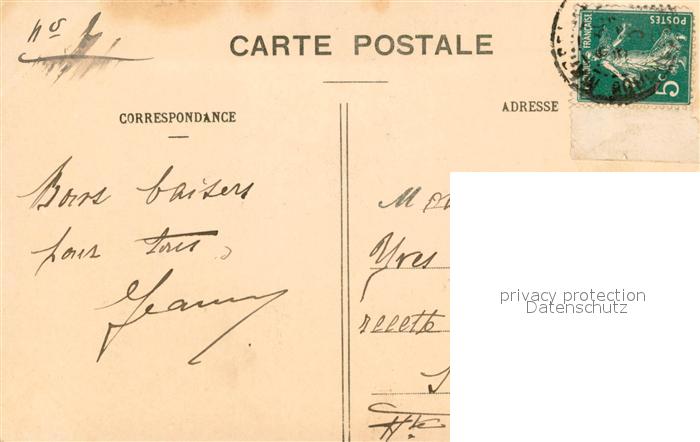 nos 2
CARTE POSTALE
CORRESPONDANCE
ADRESSE
POSTES
FRANÇAISE
5c
Bons baisers
pour tous
Jeanne
Yves
recette
privacy protection
Datenschutz